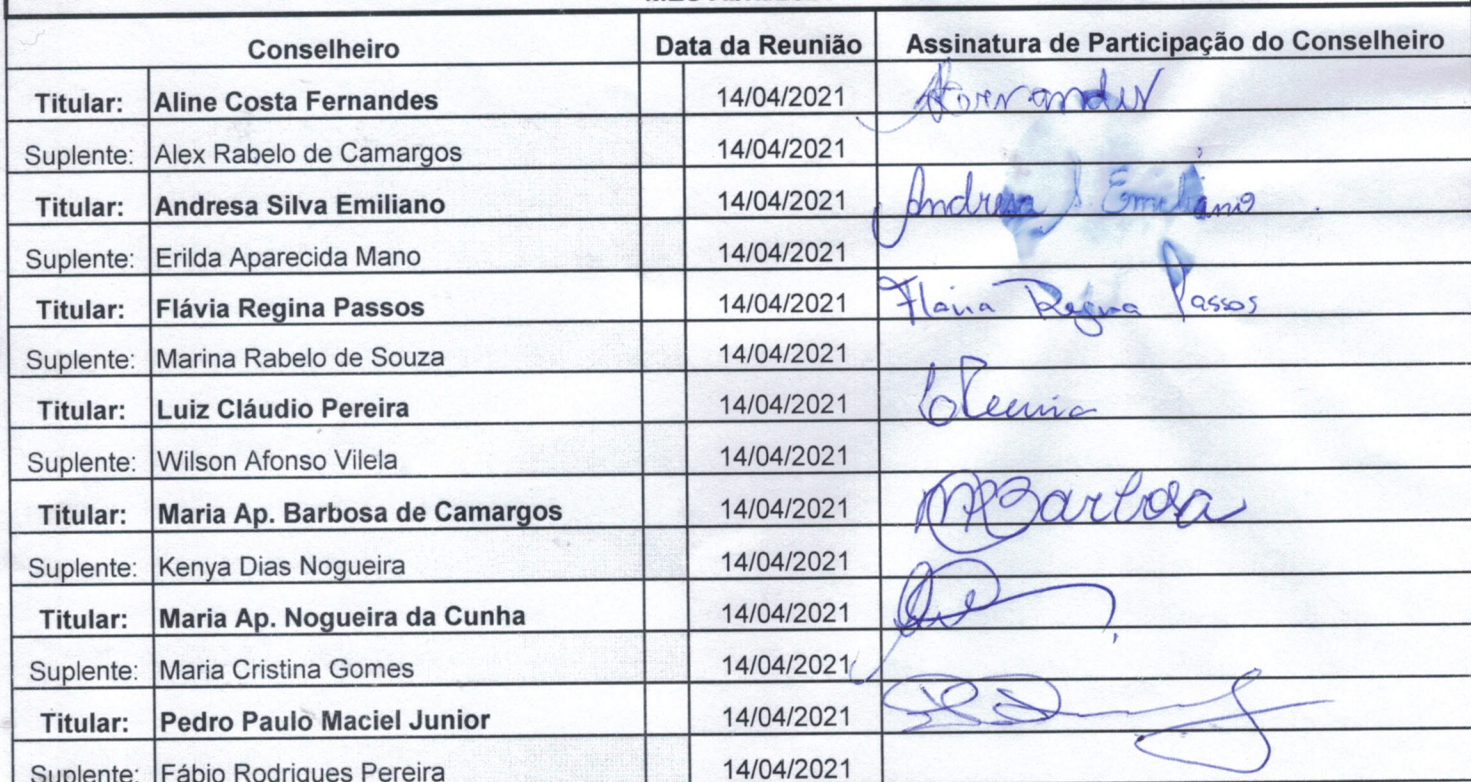 Conselheiro Data da Reunião Assinatura de Participação do Conselheiro
Titular: Aline Costa Fernandes 14/04/2021
Suplente: Alex Rabelo de Camargos 14/04/2021
Titular: Andresa Silva Emiliano 14/04/2021 Andresa S. Emiliano
Suplente: Erilda Aparecida Mano 14/04/2021
Titular: Flávia Regina Passos 14/04/2021 Flávia Regina Passos
Suplente: Marina Rabelo de Souza 14/04/2021
Titular: Luiz Cláudio Pereira 14/04/2021
Suplente: Wilson Afonso Vilela 14/04/2021
Titular: Maria Ap. Barbosa de Camargos 14/04/2021 MABarbosa
Suplente: Kenya Dias Nogueira 14/04/2021
Titular: Maria Ap. Nogueira da Cunha 14/04/2021
Suplente: Maria Cristina Gomes 14/04/2021
Titular: Pedro Paulo Maciel Junior 14/04/2021
Suplente: Fábio Rodrigues Pereira 14/04/2021